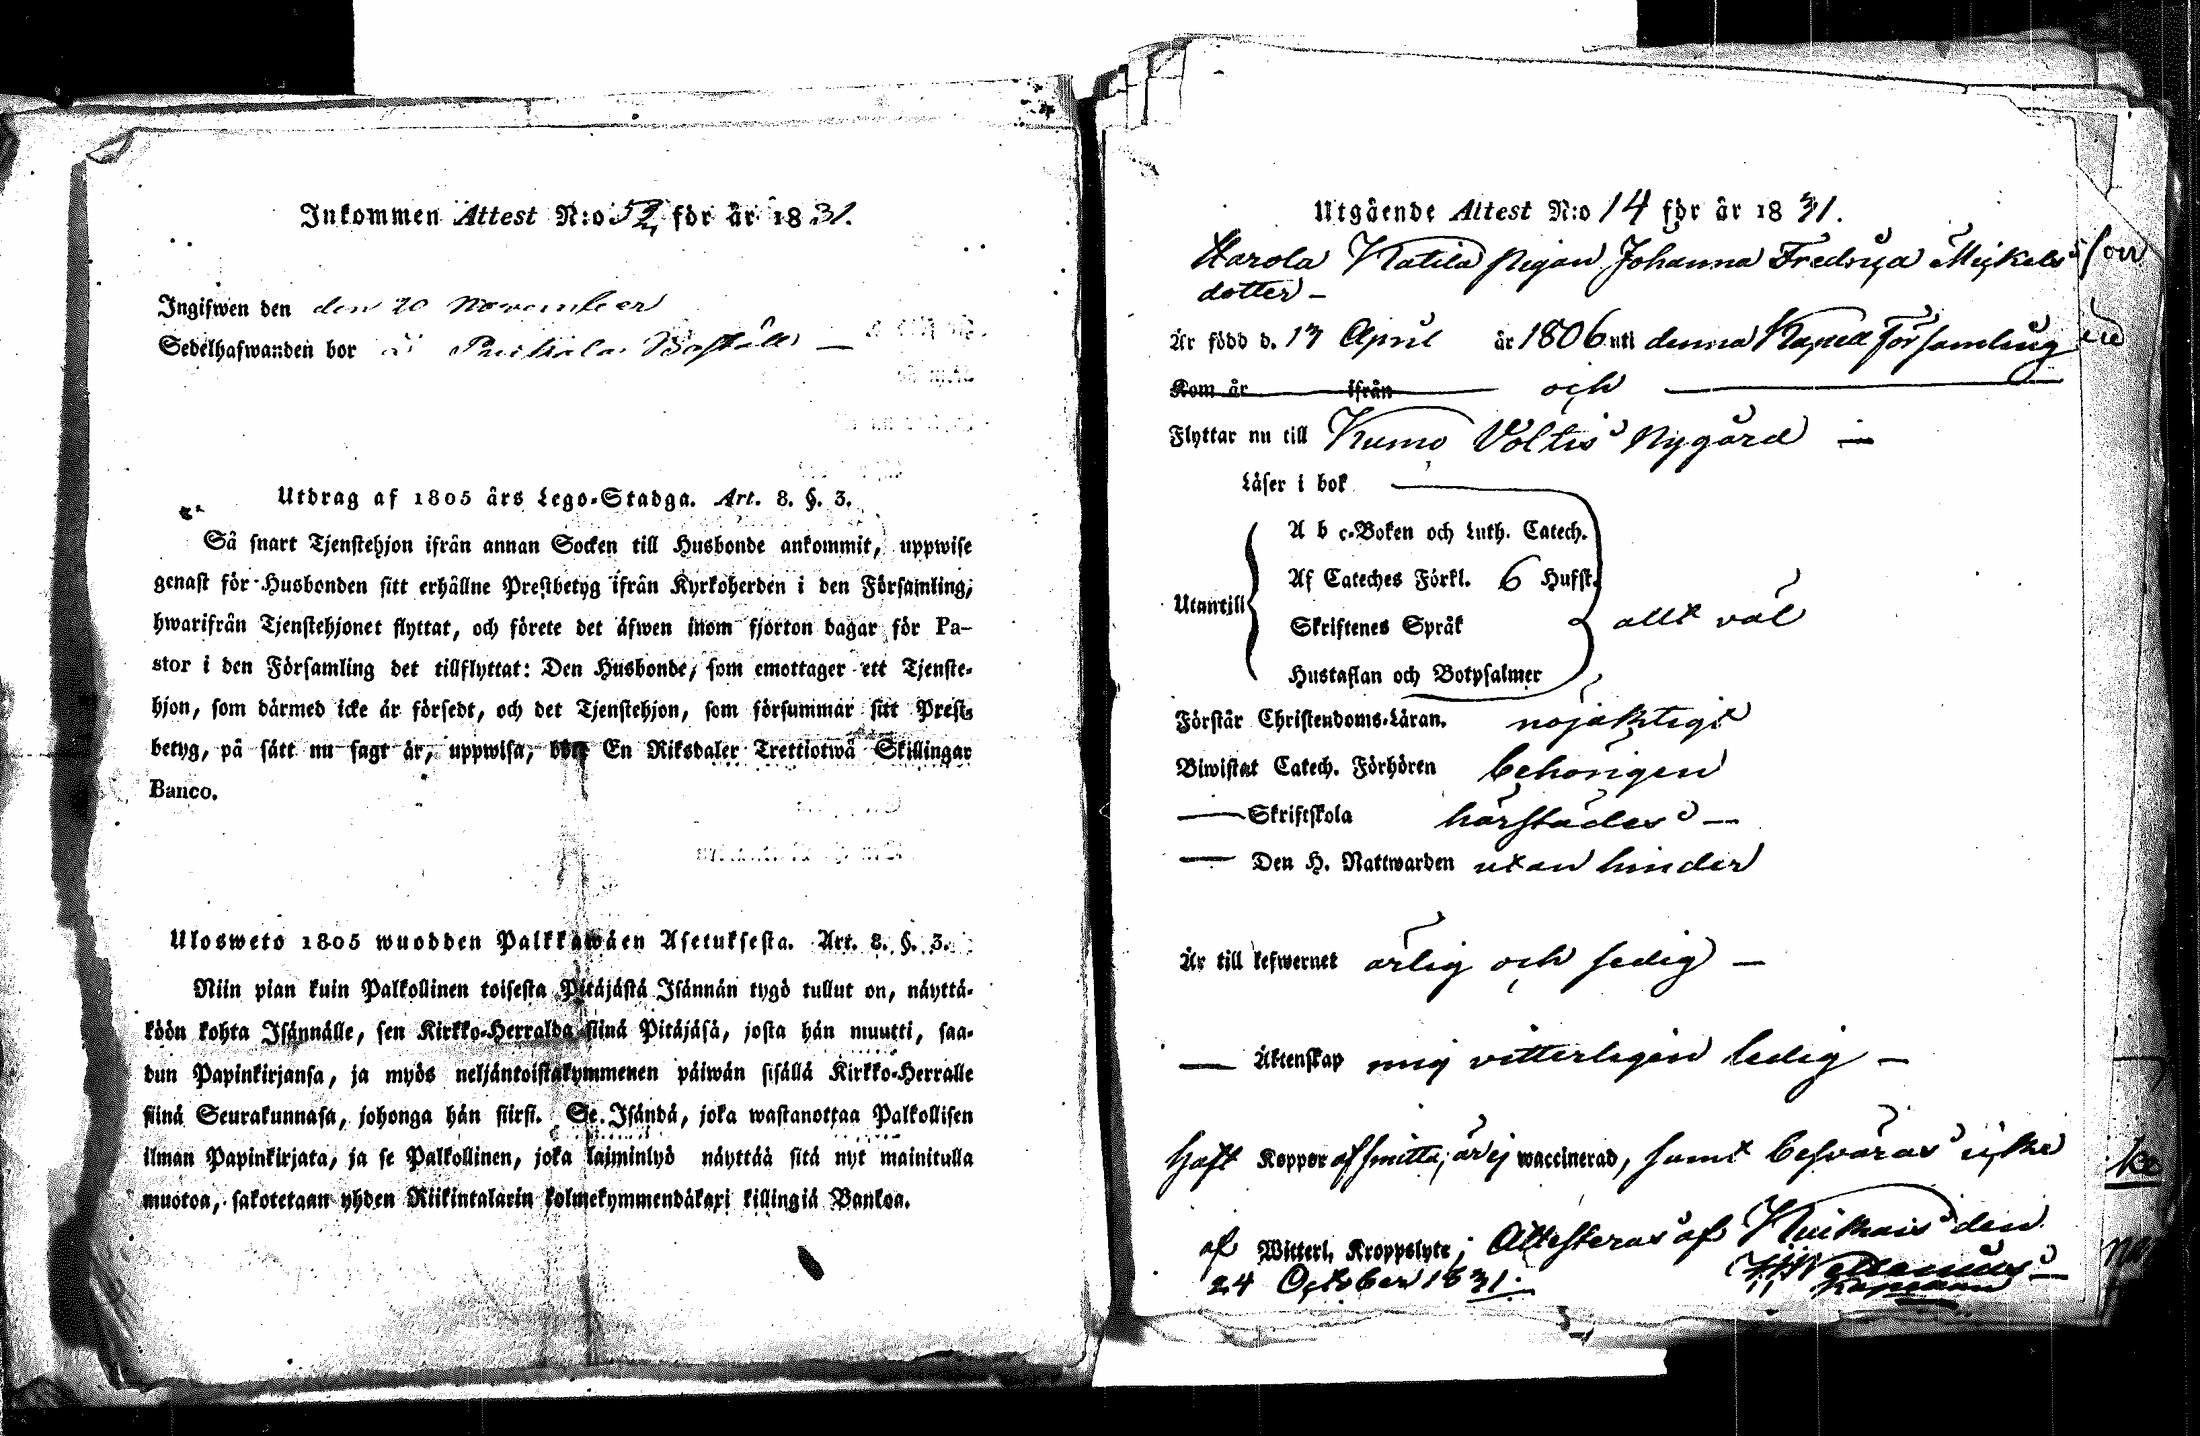 Inkommen Attest N:o 52 för år 1831.
Ingifwen den den 20 November
Sedelhafwanden bor å Puihala Boställe —
Utdrag af 1805 års Lego-Stadga. Art. 8. §. 3.
Så snart Tjenstehjon ifrån annan Socken till Husbonde ankommit, uppwise
genast för Husbonden sitt erhållne Prestbetyg ifrån Kyrkoherden i den Församling,
hwarifrån Tjenstehjonet flyttat, och förete det äfwen inom fjorton dagar för Pa-
stor i den Församling det tillflyttat: Den Husbonde, som emottager ett Tjenste-
hjon, som därmed icke är försedt, och det Tjenstehjon, som försummar sitt Prest-
betyg, på sätt nu sagt är, uppwisa, böte En Riksdaler Trettiotwå Skillingar
Banco.
Ulosweto 1805 wuodden Palkkawäen Asetuksesta. Art. 8. §. 3.
Niin pian kuin Palkollinen toisesta Pitäjästä Isännän tygö tullut on, näyttä-
köön kohta Isännälle, sen Kirkko-Herralda siinä Pitäjäsä, josta hän muutti, saa-
dun Papinkirjansa, ja myös neljäntoistakymmenen päiwän sisällä Kirkko-Herralle
siinä Seurakunnasa, johonga hän siirsi. Se Isändä, joka wastanottaa Palkollisen
ilman Papinkirjata, ja se Palkollinen, joka laiminlyö näyttää sitä nyt mainitulla
muotoa, sakotetaan yhden Riikintalarin kolmekymmendäkaxi killingiä Bankoa.
Utgående Attest N:o 14 för år 1831.
Harola Katila pigan Johanna Fredrica Mickels
dotter —
Är född d. 13 April år 1806 uti denna Kapell församling
Kom år ifrån och
Flyttar nu till Kumo Voltis Nygård —
Läser i bok
A b c-Boken och Luth. Catech.
Af Cateches Förkl. 6 Hufst.
Utantill
Skriftenes Språk allt väl
Hustaflan och Botpsalmer
Förstår Christendoms-Läran. nöjaktigt
Biwistat Catech. Förhören behörigen
— Skriftskola härstädes —
— Den H. Nattwarden utan hinder
Är till lefwernet ärlig och sedig —
— Äktenskap mig vitterligen ledig —
haft Koppor af smitta, är ej waccinerad, samt besväras icke
af Witterl. Kroppslyte; Attesteras af Kiukais den
24 October 1831.
Kapellan